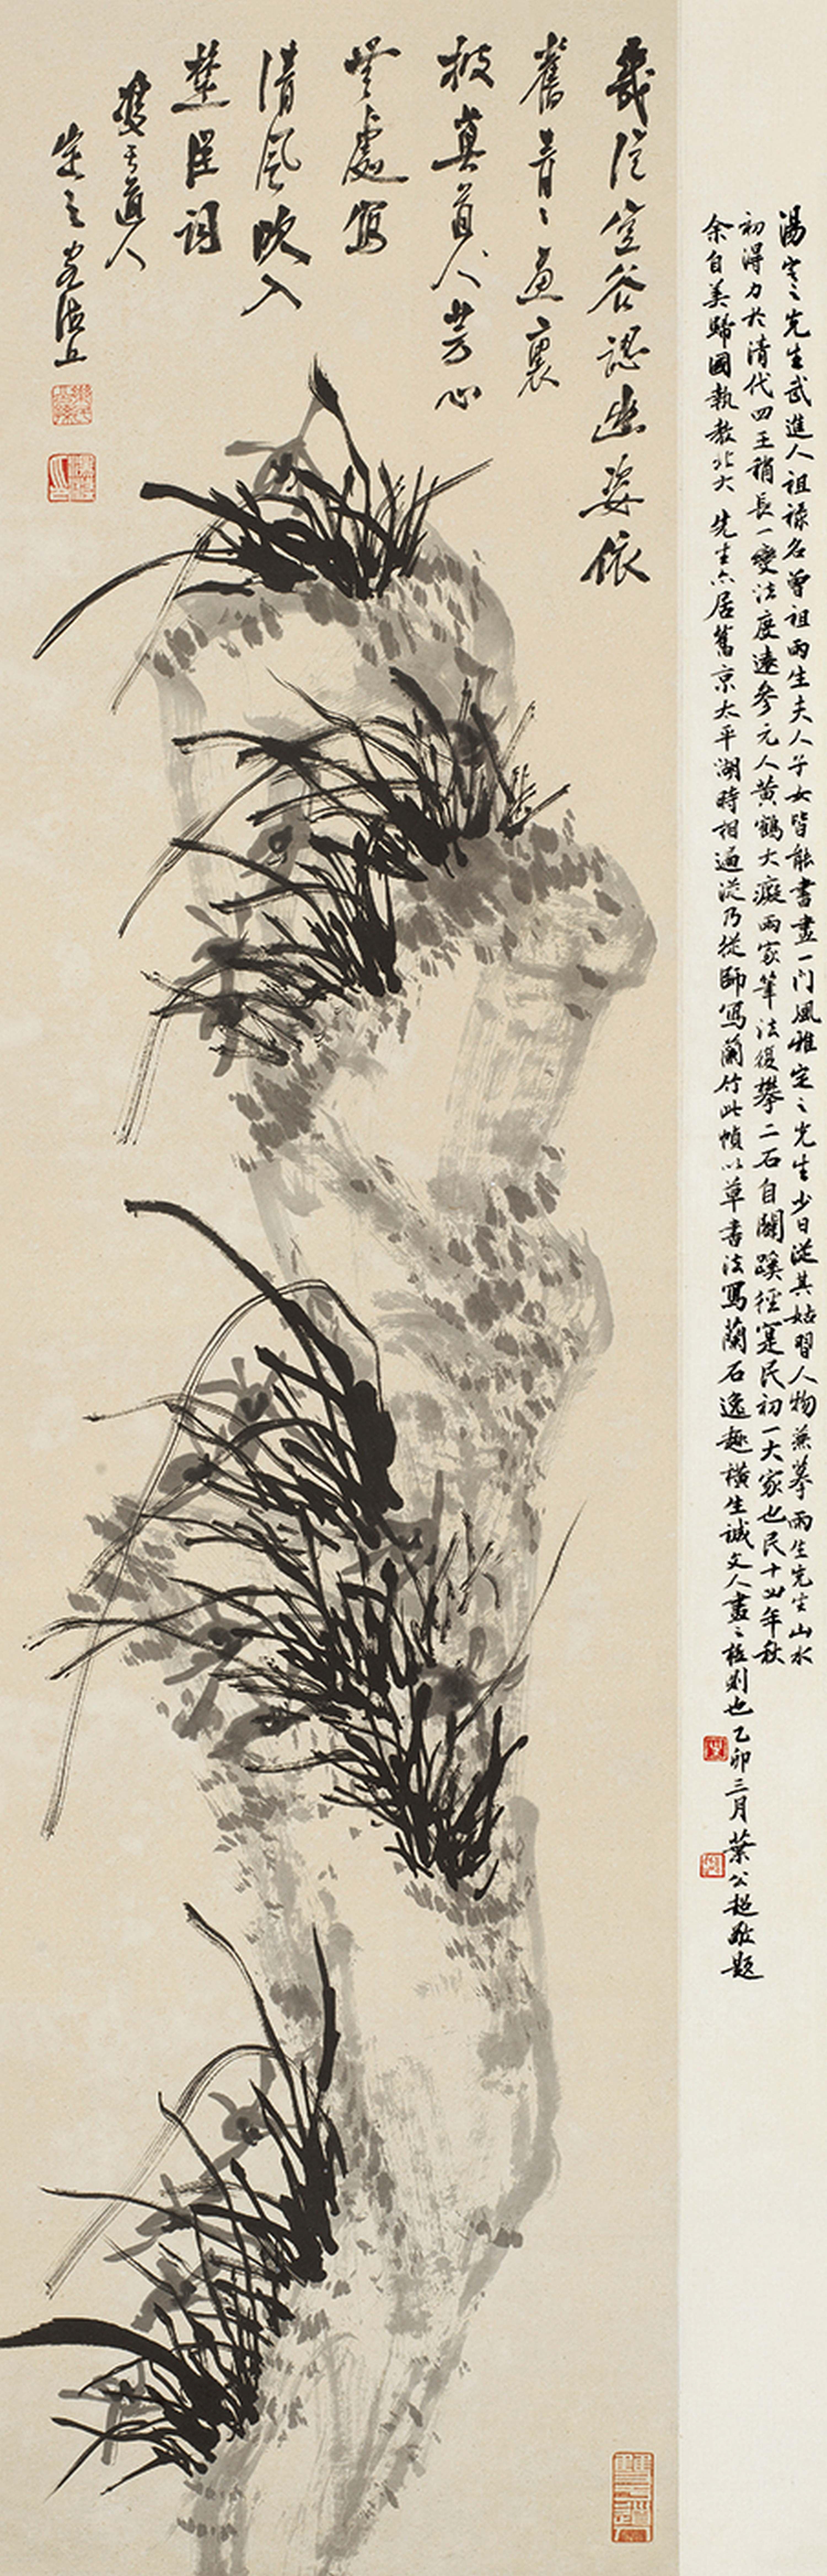 幾從空谷認幽姿依
舊青〻畫裏
披真首人芳心
無處寫
清風吹入
楚臣詞
雙于道人
定之客滬上
湯定之先生武進人祖祿名曾祖雨生夫人子女皆能書畫一門風雅定之先生少日從其姑習人物兼摹雨生先生山水
初得力於清代四王稍長一變法度遠參元人黃鶴大癡兩家筆法後攀二石自闢蹊徑寔民初一大家也民十五年秋
余自美歸國執教北大先生亦居舊京太平湖時相過從乃從師寫蘭竹此幀以草書法寫蘭石逸趣橫生誠文人畫之極則也乙卯三月葉公超敬題